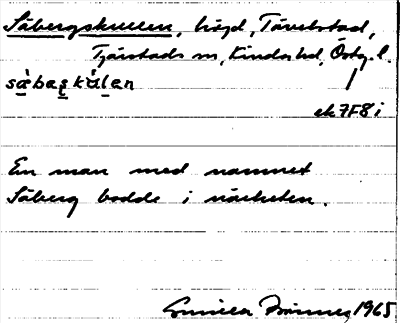 Såbergskullen, höjd, Tåvelstad,
Tjärstads sn, Kinda hd, Östg. l.
så̀bæs̨kɯ̀len
ek 7F8i
En man med namnet
Såberg bodde i närheten.
Gunilla 1965